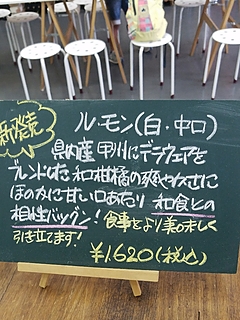 新発売
ル・モン(白・中口)
県内産 甲州にデラウェアを
ブレンドした 和柑橘の爽やかさに
ほのかに甘い口あたり 和食との
相性バツグン! 食事をより美味しく
引き立てます!
¥1,620(税込)